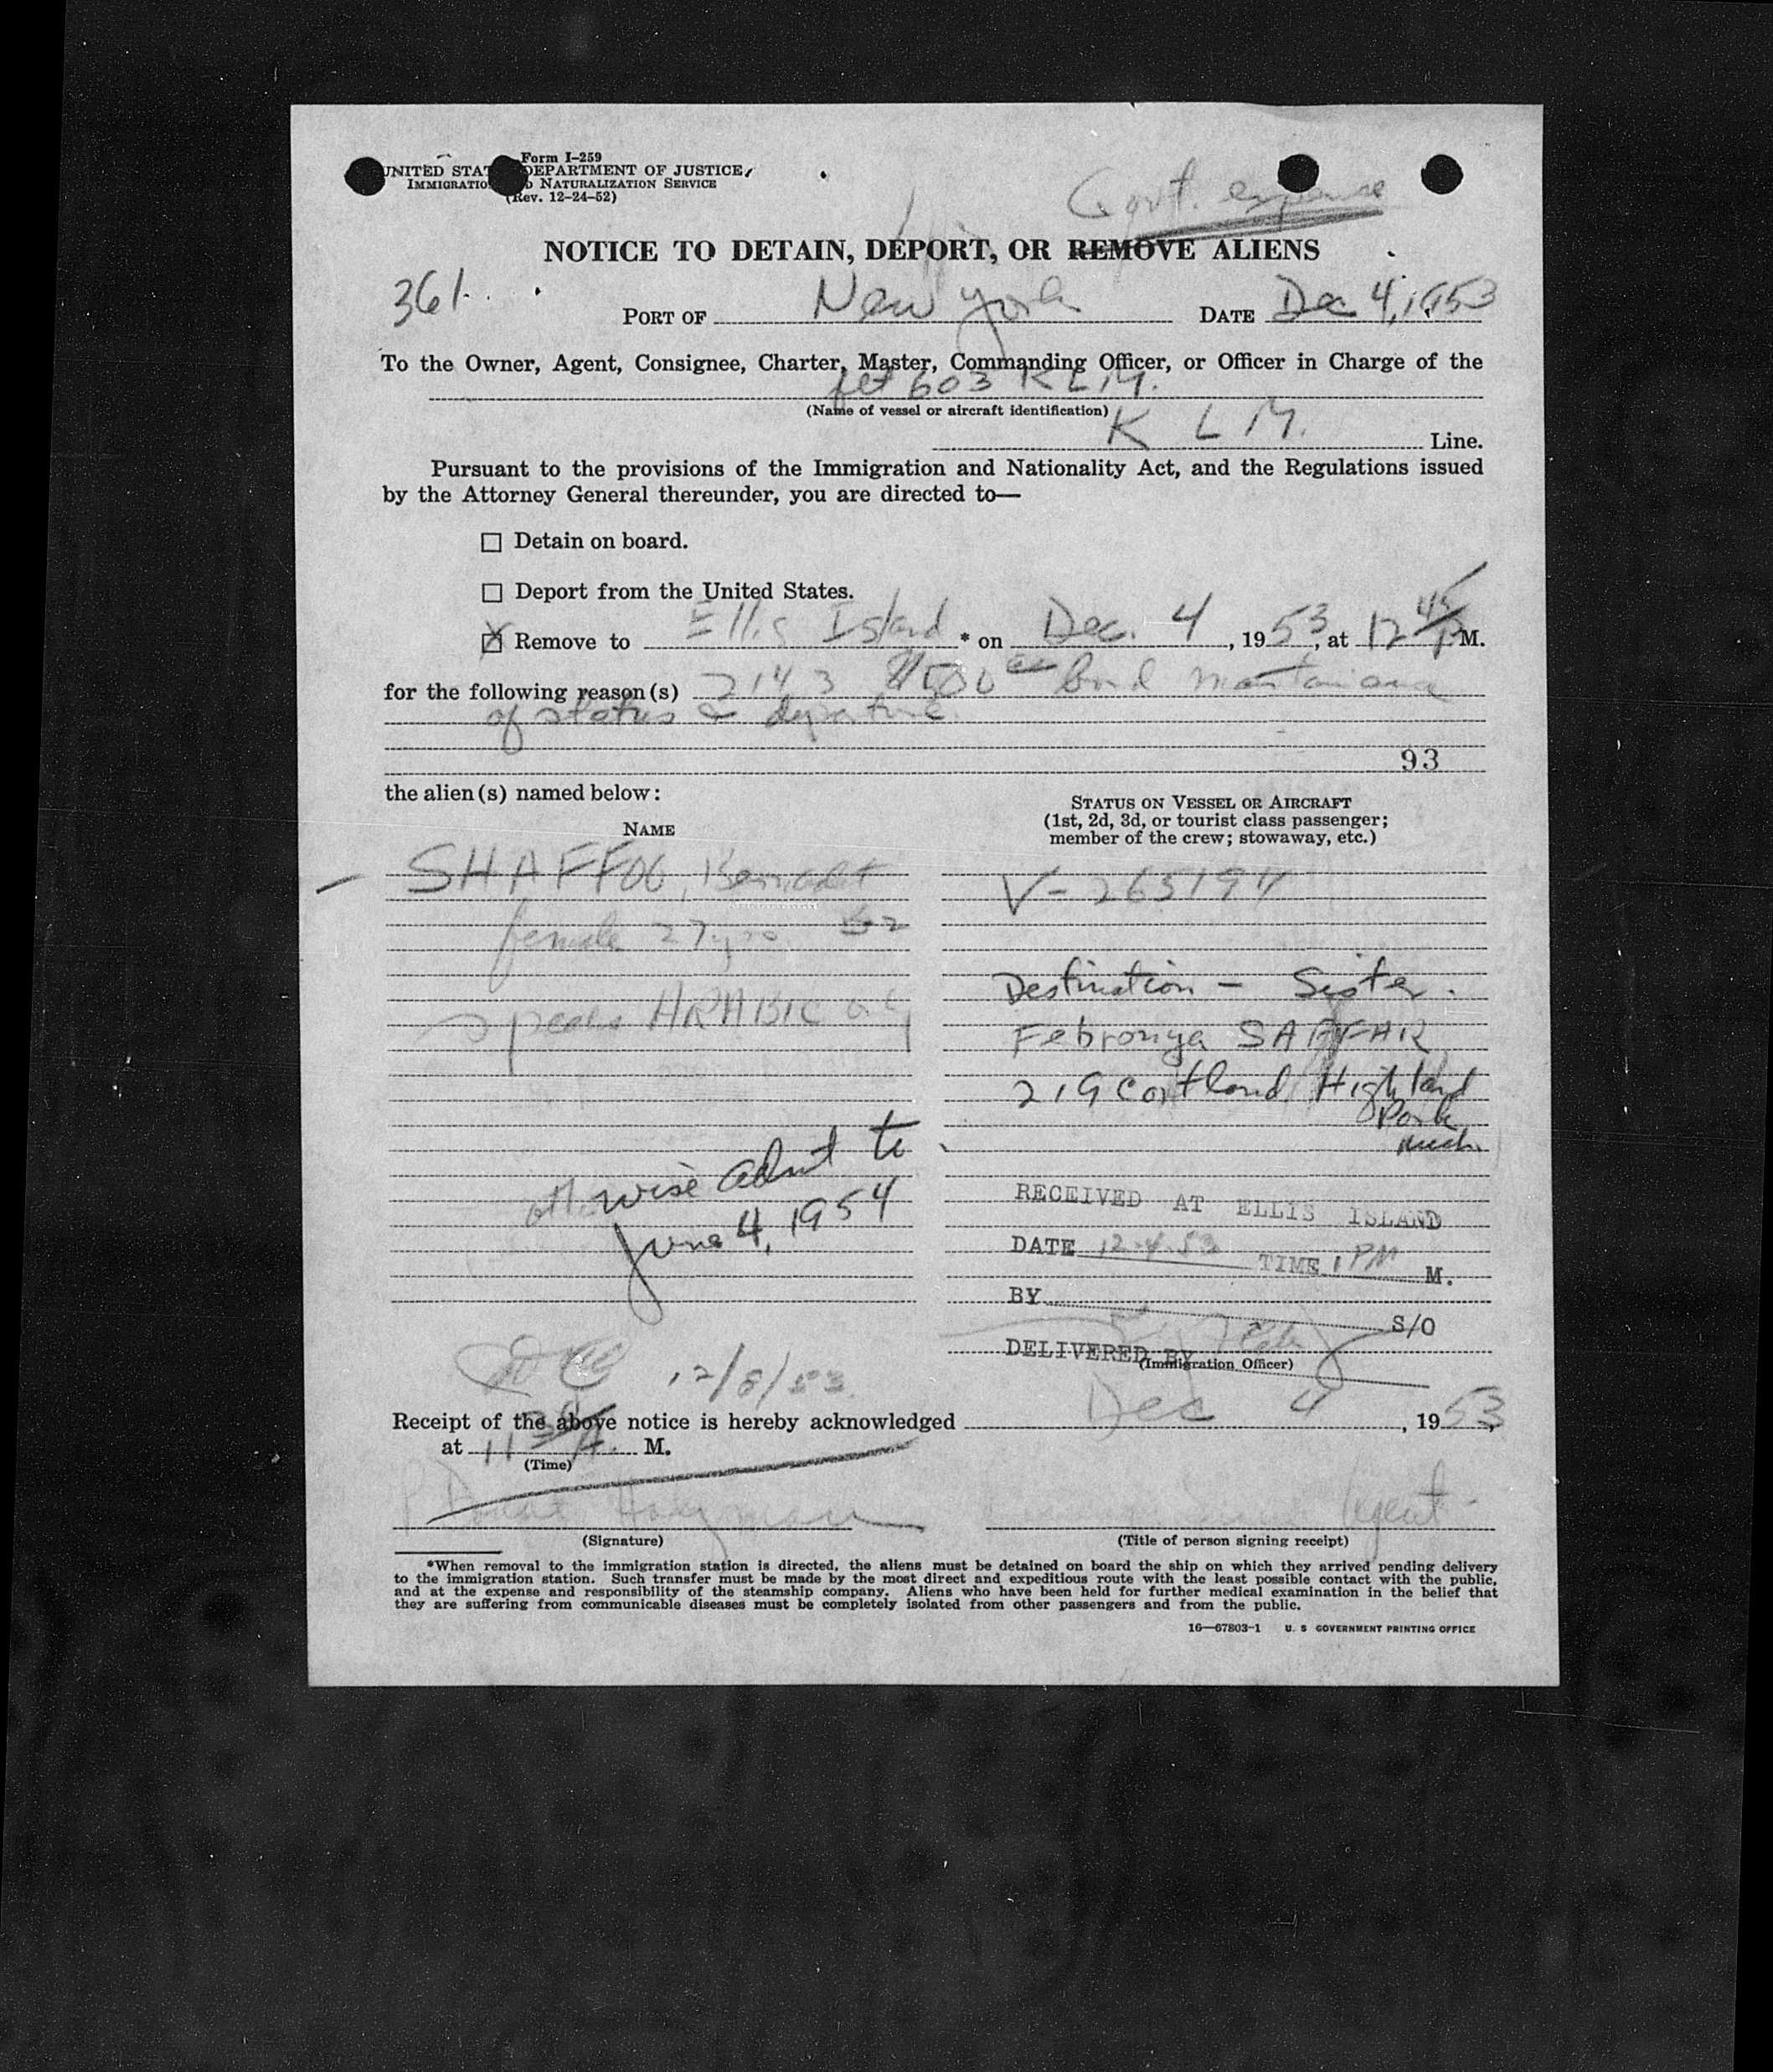 Form I-259
UNITED STAT DEPARTMENT OF JUSTICE
IMMIGRATIO NATURALIZATION SERVICE
(Rev. 12-24-52)
Govt. expense
NOTICE TO DETAIN, DEPORT, OR REMOVE ALIENS
361.
PORT OF New York DATE Dec 4, 1953
To the Owner, Agent, Consignee, Charter, Master, Commanding Officer, or Officer in Charge of the
flt 603 KLM.
(Name of vessel or aircraft identification)
K L M. Line.
Pursuant to the provisions of the Immigration and Nationality Act, and the Regulations issued
by the Attorney General thereunder, you are directed to—
☐ Detain on board.
☐ Deport from the United States.
☒ Remove to Ellis Island * on Dec. 4, 1953, at 12 45 P M.
for the following reason(s) 2143 $500 bond maintainance
of status & departure.
93
the alien(s) named below:
NAME
STATUS ON VESSEL OR AIRCRAFT
(1st, 2d, 3d, or tourist class passenger;
member of the crew; stowaway, etc.)
SHAFFOO,
V-265194
female 27 yrs B-2
speaks ARABIC only
Destination - Sister.
Febronya SAFFAR
219 Cortland, Highland
Park
Mich.
otherwise admit to
June 4, 1954
RECEIVED AT ELLIS ISLAND
DATE 12-4-53 TIME 1 PM M.
BY
S/O
DELIVERED BY
(Immigration Officer)
12/8/53
Receipt of the above notice is hereby acknowledged Dec 4, 1953,
at 11 A. M.
(Time)
Agent
(Signature)
(Title of person signing receipt)
*When removal to the immigration station is directed, the aliens must be detained on board the ship on which they arrived pending delivery
to the immigration station. Such transfer must be made by the most direct and expeditious route with the least possible contact with the public,
and at the expense and responsibility of the steamship company. Aliens who have been held for further medical examination in the belief that
they are suffering from communicable diseases must be completely isolated from other passengers and from the public.
16—67803-1 U. S GOVERNMENT PRINTING OFFICE